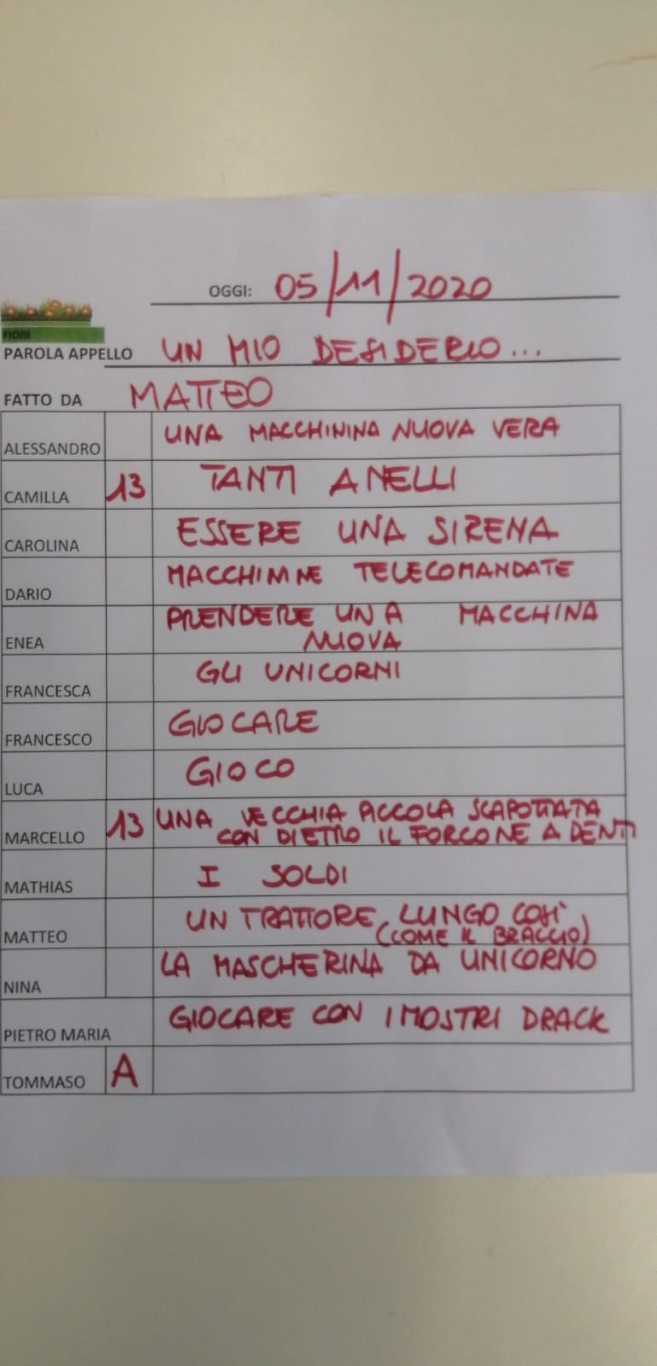 OGGI: 05/11/2020
FIORI
PAROLA APPELLO UN MIO DESIDERIO...
FATTO DA MATTEO
ALESSANDRO UNA MACCHININA NUOVA VERA
CAMILLA 13 TANTI ANELLI
CAROLINA ESSERE UNA SIRENA
DARIO MACCHINNE TELECOMANDATE
ENEA PRENDERE UNA MACCHINA
NUOVA
FRANCESCA GLI UNICORNI
FRANCESCO GIOCARE
LUCA GIOCO
MARCELLO 13 UNA VECCHIA ACCOLA SCAPOTTATA
CON DIETRO IL FORCONE A DENTI
MATHIAS I SOLDI
MATTEO UN TRATTORE LUNGO COSÌ
(COME IL BRACCIO)
NINA LA MASCHERINA DA UNICORNO
PIETRO MARIA GIOCARE CON I MOSTRI DRACK
TOMMASO A